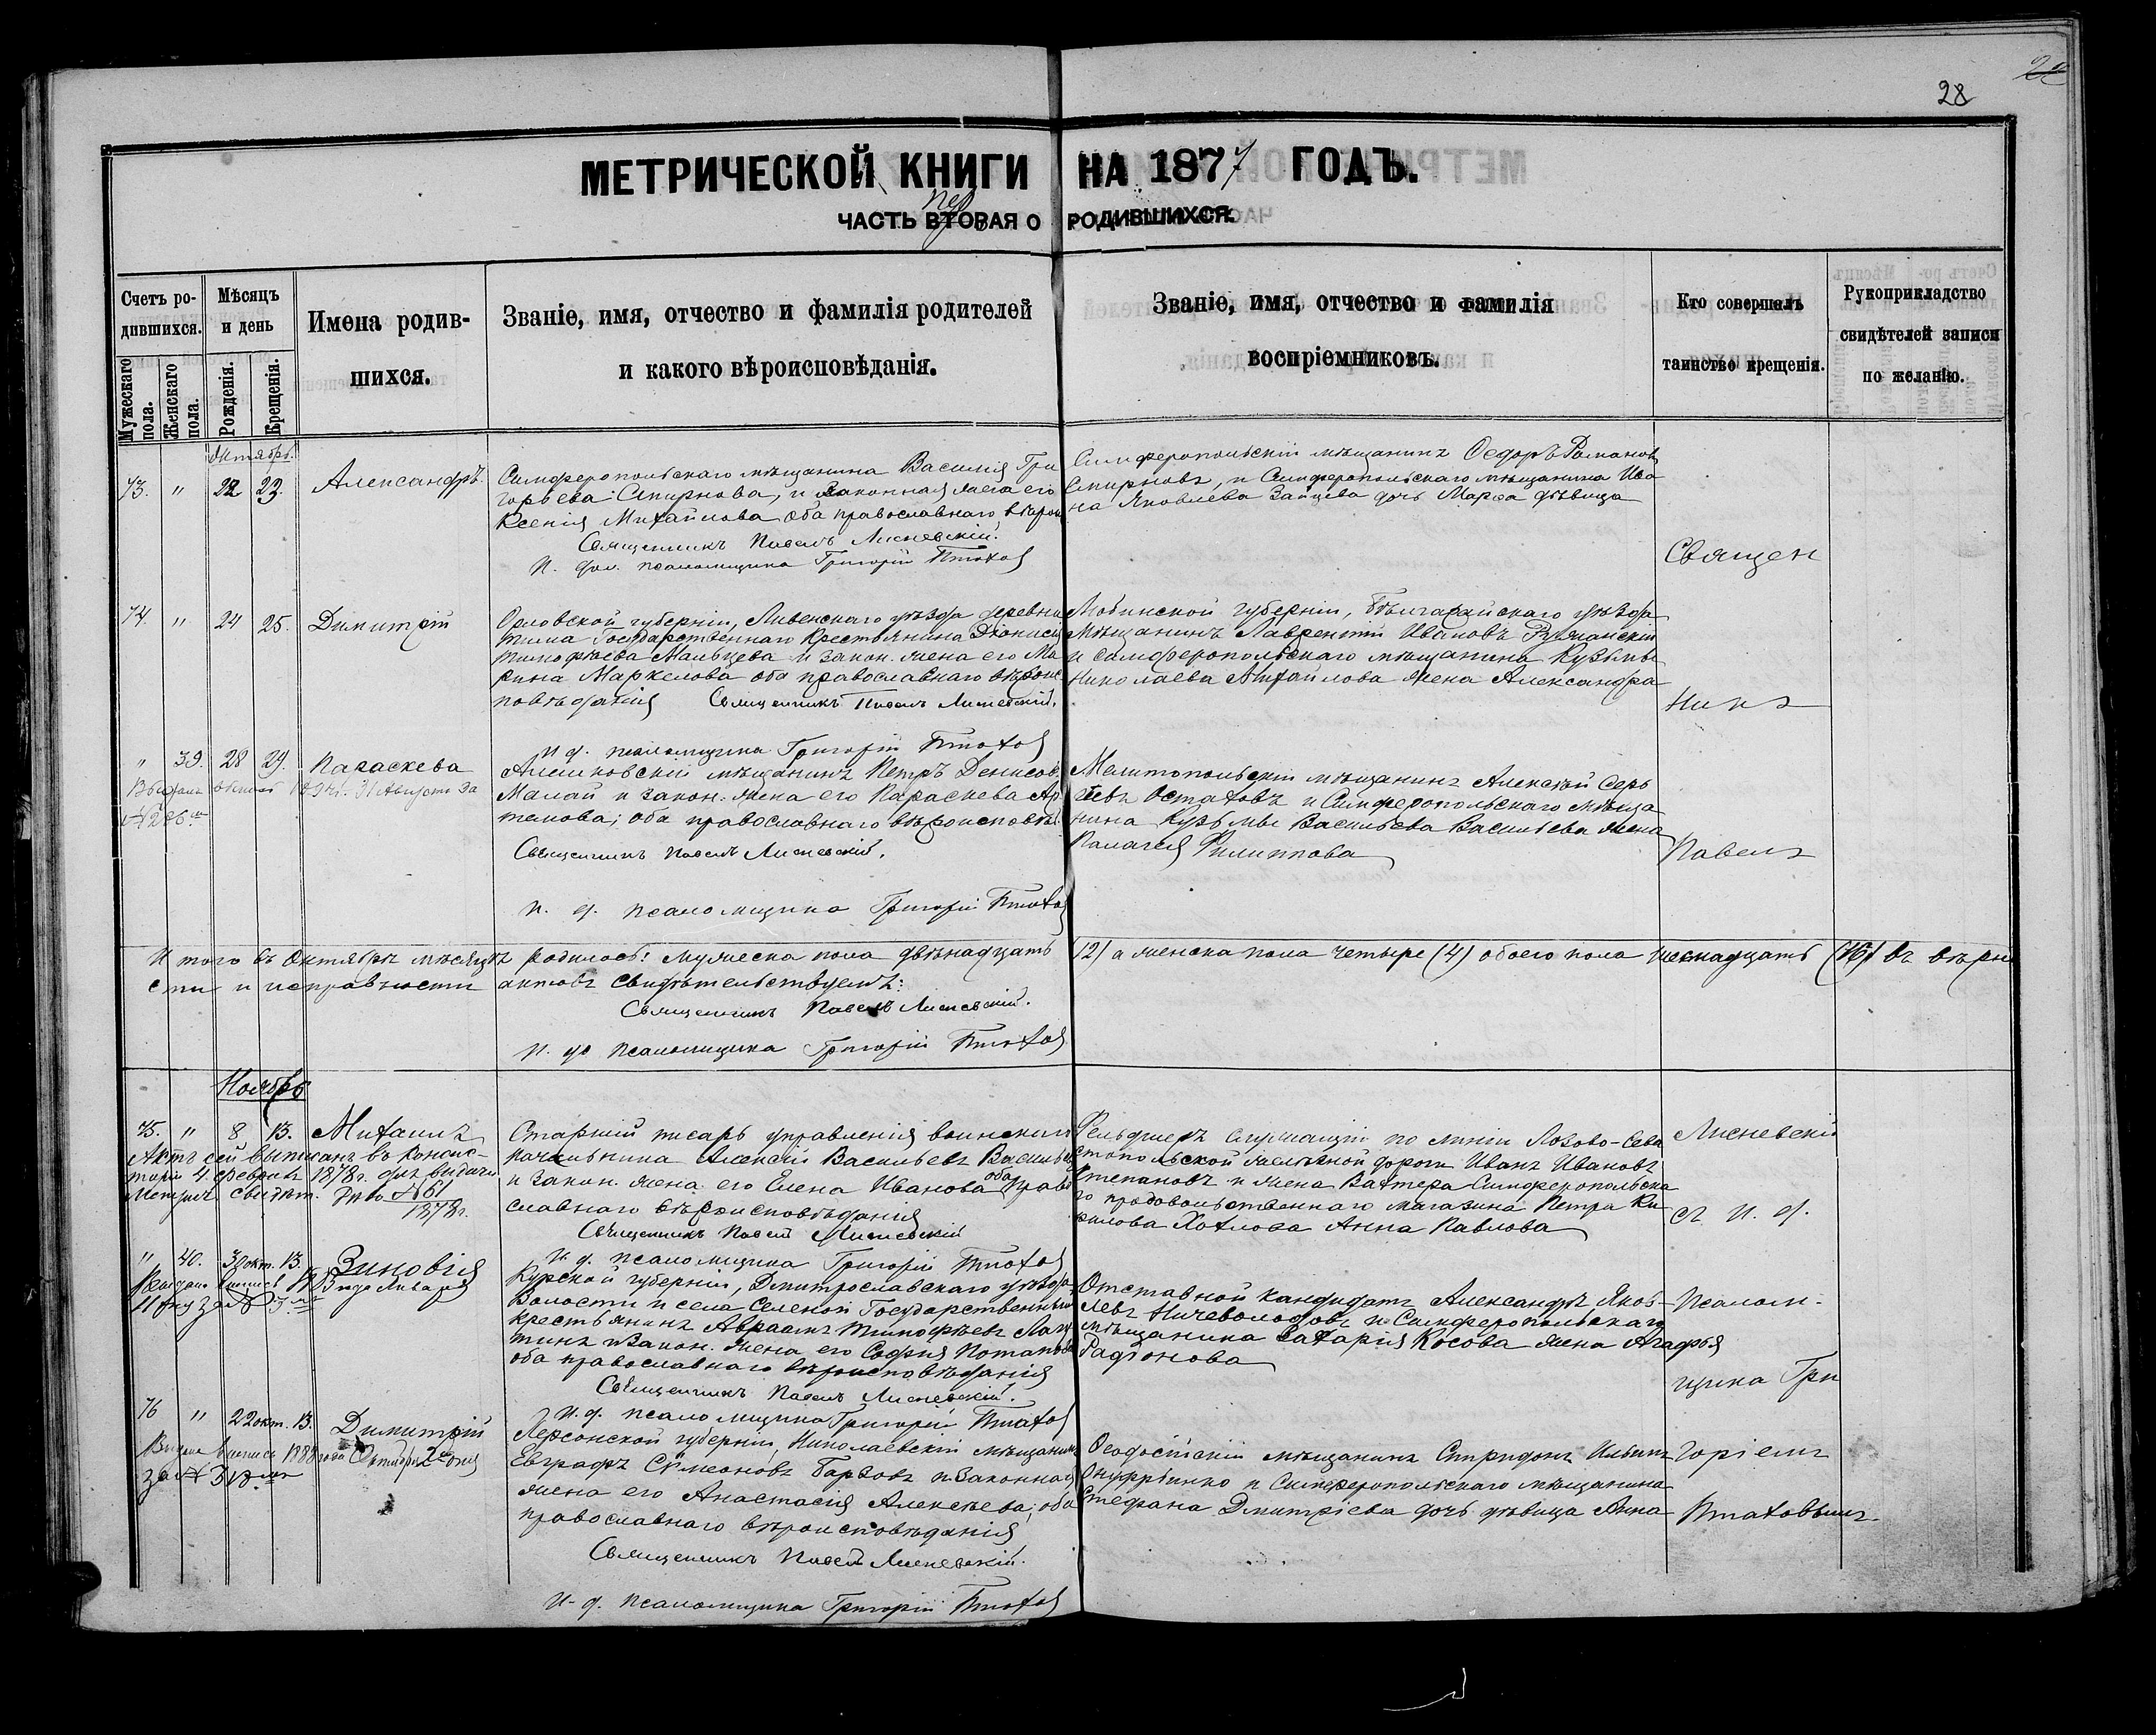 28
МЕТРИЧЕСКОЙ КНИГИ НА 1877 ГОДЪ.
пер
ЧАСТЬ ВТОРАЯ О РОДИВШИХСЯ.
Счетъ ро-
дившихся.
Мужескаго пола.
Женскаго пола.
Мѣсяцъ
и день
Рожденія.
Крещенія.
Имена родив-
шихся.
Званіе, имя, отчество и фамилія родителей
и какого вѣроисповѣданія.
Званіе, имя, отчество и фамилія
воспріемниковъ.
Кто совершалъ
таинство крещенія.
Рукоприкладство
свидѣтелей записи
по желанію.
Октябрь.
73. " 22 23. Александръ.
Симферопольскаго мѣщанина Василія Гри
горьева Смирнова, и законная жена его
Ксенія Михайлова оба православнаго вѣрои
Священникъ Павелъ Лисневскій.
И. дол. псаломщика Григорій Птахов
Симферопольскій мѣщанинъ Ѳедоръ Романовъ
Смирновъ, и Симферопольскаго мѣщанина Ива
на Яковлева Зайцева дочь Марѳа дѣвица
Священ
74. " 24 25. Димитрій
Орловской губерніи, Ливенскаго уѣзда деревни
Государственнаго Крестьянина Діонисія
Тимофѣева Мальцева и закон. жена его Ма
рина Маркелова оба православнаго вѣроис
повѣданія Священникъ Павелъ Лисневскій.
И д. псаломщика Григорій Птахов
губерніи, уѣзда
Мѣщанинъ Лаврентій Ивановъ
и симферопольскаго мѣщанина Кузьмы
Николаева Михайлова жена Александра
никъ
" 39. 28 29. Параскева
31 Августа за
№ 286
Алешковскій мѣщанинъ Петръ Денисов.
Малай и закон. жена его Параскева Ар
темова; оба православнаго вѣроисповѣд.
Священникъ Павелъ Лисневскій.
И. д. псаломщика Григорій Птахов
Мелитопольскій мѣщанинъ Алексѣй Серг
ѣевъ Остаховъ и Симферопольскаго мѣща
нина Кузьмы Васильева Васильева жена
Палагея Филиппова
Павелъ
Итого въ Октябрѣ мѣсяцѣ родилось: мужеска пола двѣнадцать 12) а женска пола четыре (4) обоего пола шеснадцать (16) въ вѣрно
сти и исправности актовъ свидѣтельствуемъ:
Священникъ Павелъ Лисневскій.
И. до псаломщика Григорій Птахов
Ноябрь
75. " 8 13. Михаилъ
Актъ сей выписанъ въ консис-
торіи 4 февраля 1878 г. для выдачи
Метрич. свидѣт. № 61
1878 г.
Старшій писарь управленія воинскаго
начальника Алексѣй Васильевъ Васильев
и закон. жена его Елена Иванова оба право
славнаго вѣроисповѣданія
Священникъ Павелъ Лисневскій
И. д. псаломщика Григорій Птахов
Фельдшеръ служащій по линіи Лозово-Сева
стопольской желѣзной дороги Иванъ Ивановъ
Степановъ и жена Вахтера Симферопольска
го продовольственнаго магазина Петра Ки
рилова Хохлова Анна Павлова
Лисневскій
съ И. д.
" 40. 30 окт. 13. Зиновія
Выдана выпись Января
11 дня за № 5
Курской губерніи, Дмитрославскаго уѣзда
Волости и села Государственный
крестьянинъ Авраамъ Тимофѣевъ Лаш
тинъ и Закон. жена его Софія Потапова
оба православнаго вѣроисповѣданія
Священникъ Павелъ Лисневскій.
И. д. псаломщика Григорій Птахов
Отставной кандидатъ Александръ Яков-
левъ Ничеволодовъ и Симферопольскаго
мѣщанина Захарія Косова жена Агафья
Радіонова
Псалом-
щика Гри
76 " 22 окт. 13. Димитрій
Выдана выпись 1888 года Октября 2 дня
за № 318
Херсонской губерніи, Николаевскій мѣщанинъ
Евграфъ Сѵмеоновъ и Законная
жена его Анастасія Алексѣева; оба
православнаго вѣроисповѣданія
Священникъ Павелъ Лисневскій.
И. д. псаломщика Григорій Птахов
Ѳеодосійскій мѣщанинъ Спиридонъ Ильинъ
Онуфріенко и Симферопольскаго мѣщанина
Стефана Дмитріева дочь дѣвица Анна
горіемъ
Птаховымъ.